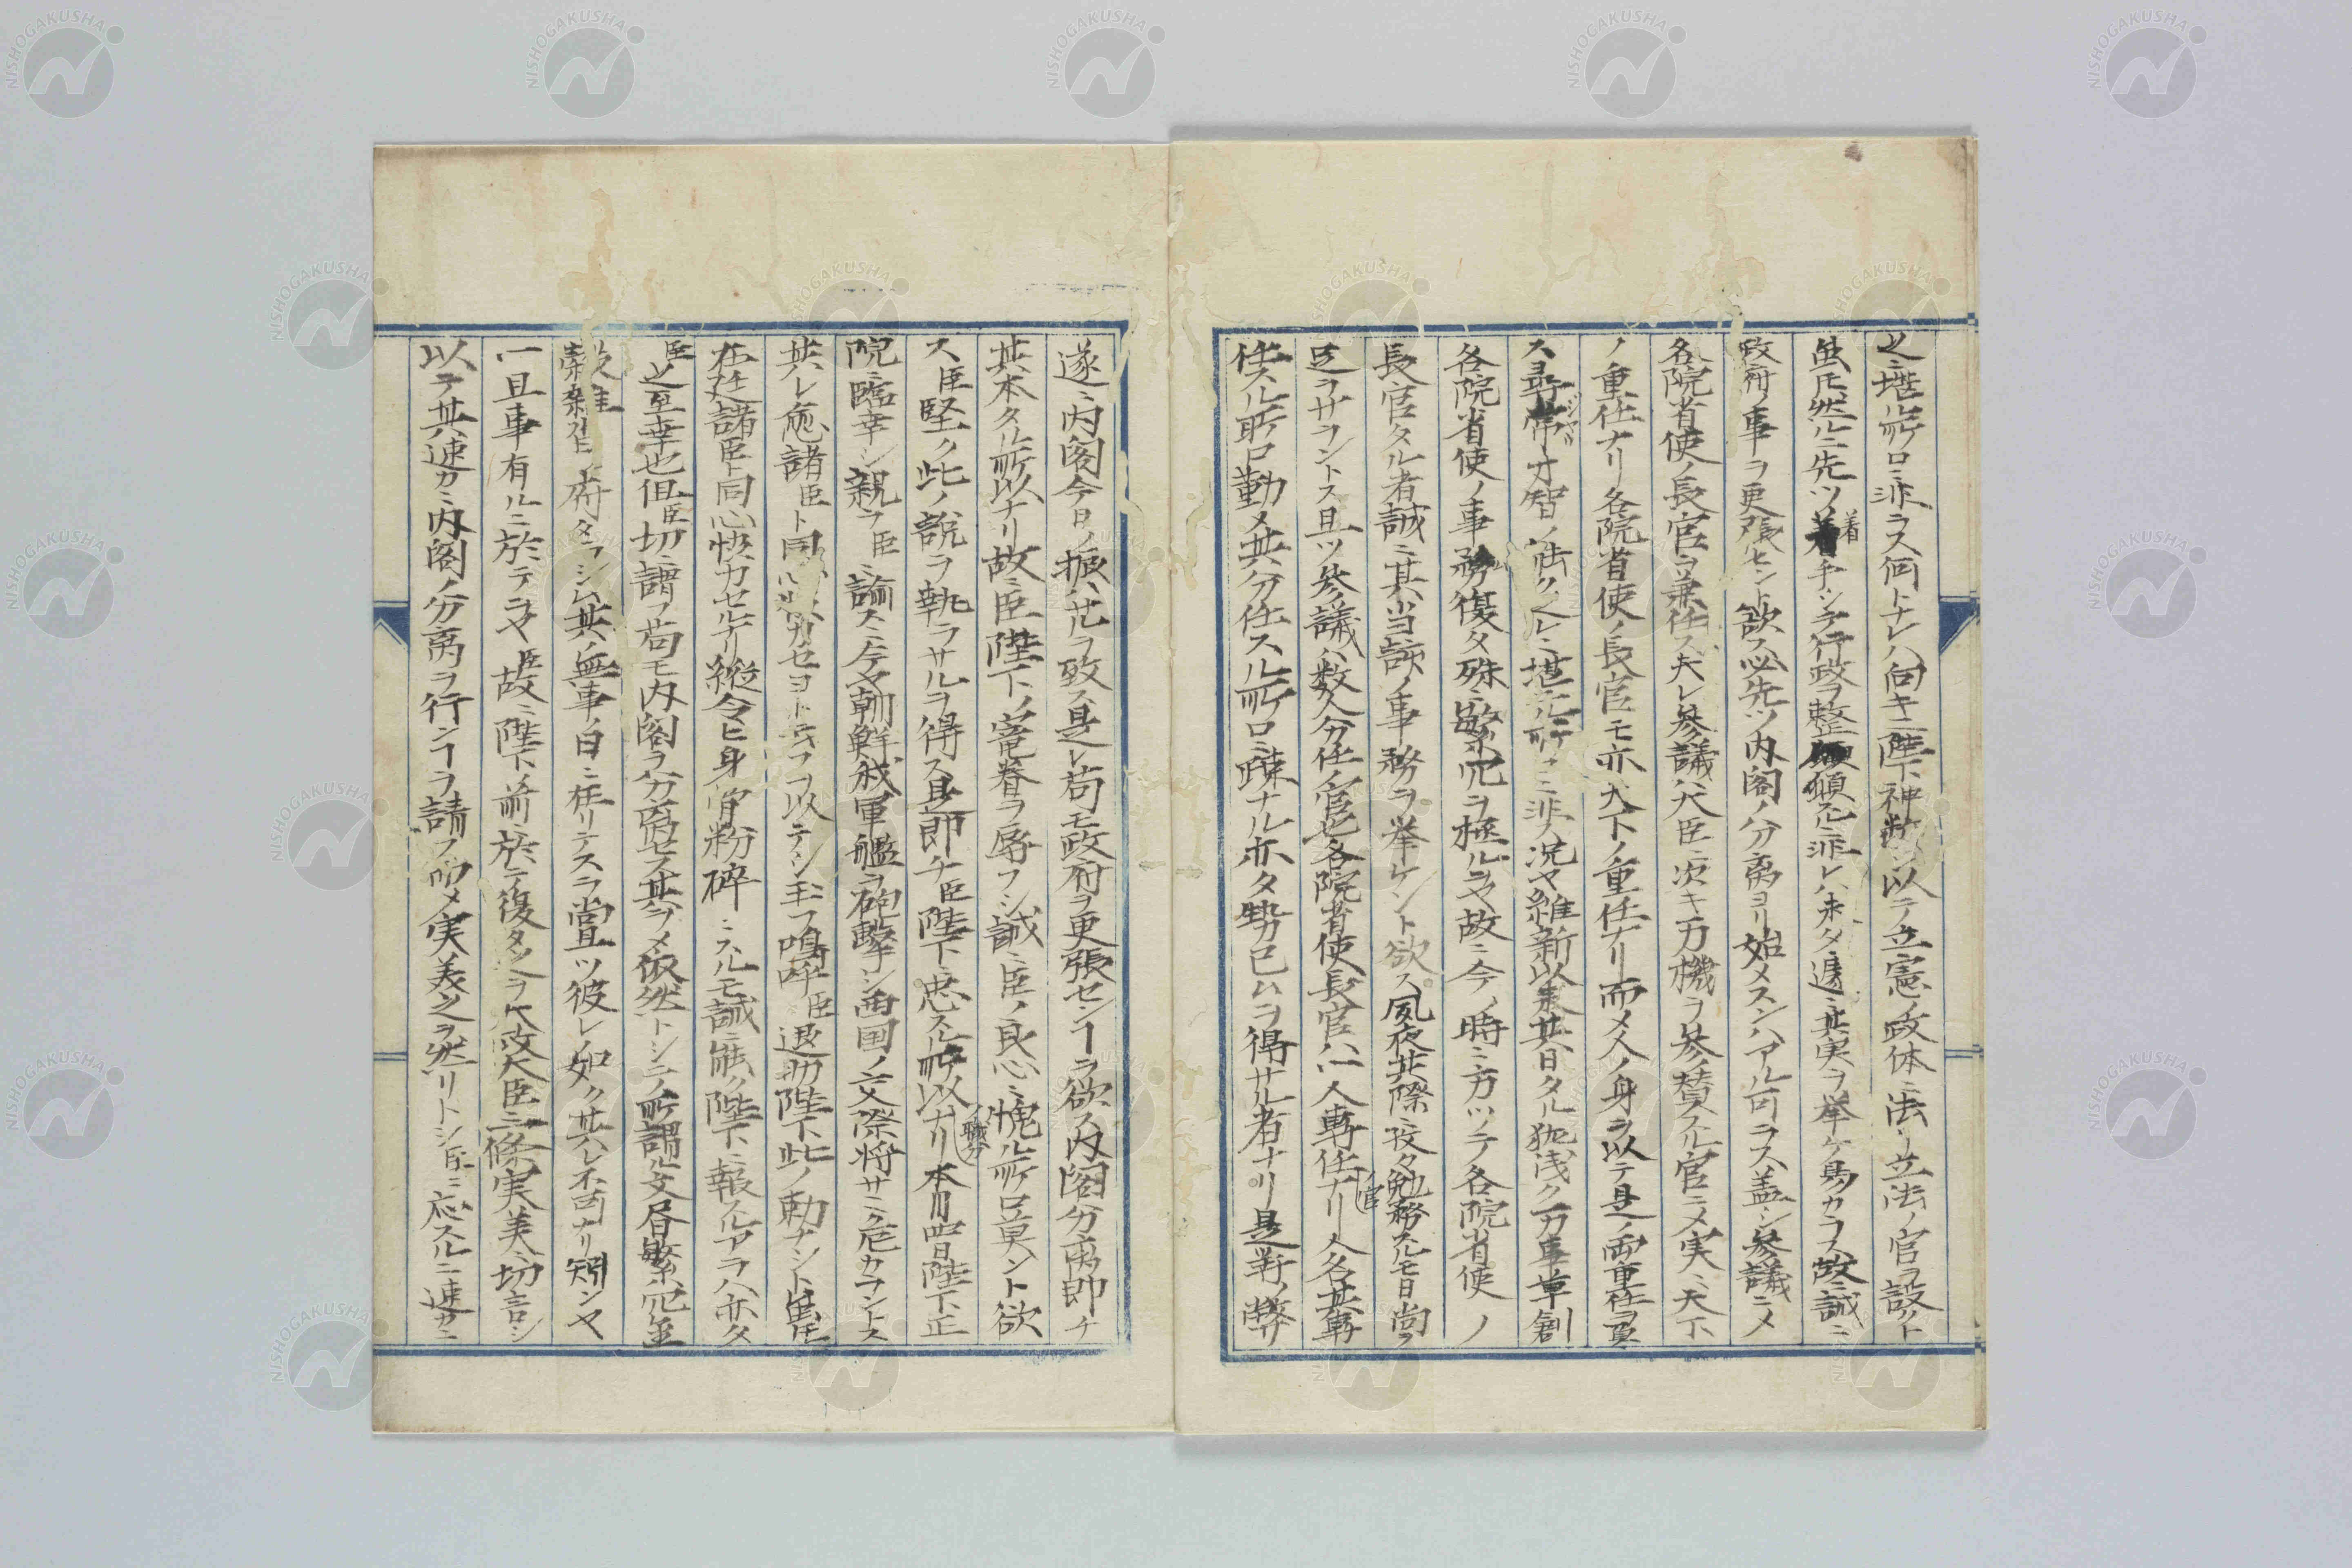 之ニ堪ル所ロニ非ラス何トナレハ向キニ陛下神断ヲ以テ立憲ノ政体ニ法リ立法ノ官ヲ設クト
虽𪜈然ルニ先ツ着手シテ行政ヲ整頓スルニ非レハ未タ遽ニ其実ヲ挙ケ易カラス故ニ誠ニ
政府ノ事ヲ更張セント欲ス必先ツ内閣ノ分离ヨリ始メスンハアル可ラス盖シ参議ニメ
各院省使ノ長官ヲ兼任ス夫レ参議ハ大臣ニ次キ万機ヲ参賛スル官ニメ実ニ天下
ノ重任ナリ各院省使ノ長官モ亦天下ノ重任ナリ而メ一人ノ身ヲ以テ是ノ両重任ヲ負
ス尋常ノ才智ノ能ク之レニ堪ル所ニ非ス况ヤ維新以来其日タル猶浅ク万事草創
各院省使ノ事務復タ殊ニ繁冗ヲ極ルヲヤ故ニ今ノ時ニ方ツテ各院省使ノ
長官タル者誠ニ其当該ノ事務ヲ挙ケント欲ス夙夜其際ニ孜々勉務スルモ日尚ヲ
足ラサラントス且ツ参議ハ数人分任ノ官也各院省使長官ハ一人専任ノ官ナリ人各其専
任スル所ロ勤メ其分任スル所ロニ疎ナル亦タ勢已ムヲ得サル者ナリ是等ノ弊
遂ニ内閣今日ノ振ハサルヲ致ス是レ苟モ政府ヲ更張センヿヲ欲ス内閣分离即チ
其本タル所以ナリ故ニ臣陛下ノ寵眷ヲ辱フシ誠ニ臣ノ良心ニ愧ル所ロ莫ント欲
ス臣堅ク此ノ説ヲ執ラサルヲ得ス是即チ臣陛下ニ忠スル職分所以ナリ本月四日陛下正
院ニ臨幸シ親ラ臣ニ諭スニ今ヤ朝鮮我軍艦ヲ砲撃シ両国ノ交際将サニ危カラントス
其レ庶諸臣ト同心協力セヨト云フヲ以テシ玉フ嗚呼臣退カハ陛下此ノ勅ナシト虽𪜈
在廷諸臣ト同心協力セルナリ縦令ヒ身骨粉砕ニスルモ誠ニ能ク陛下ニ報スルアラハ亦タ
臣之至幸也但臣切ニ謂フ苟モ内閣ヲ分离セス其ヲメ依然トシテ所謂ル文具繁冗奎
雜ノ府タラシム其ノ無事ノ日ニ在リテスラ尚且ツ彼レノ如ク其レ不可ナリ矧ンヤ
一旦事有ルニ於テヲヤ臣故ニ陛下ノ前ニ於テ復タ之ヲ太政大臣三條実美ニ切言シ
以テ其速カニ内閣ノ分离ヲ行ンヿヲ請フ而メ実美之ヲ然リトシ臣ニ応スルニ速カニ